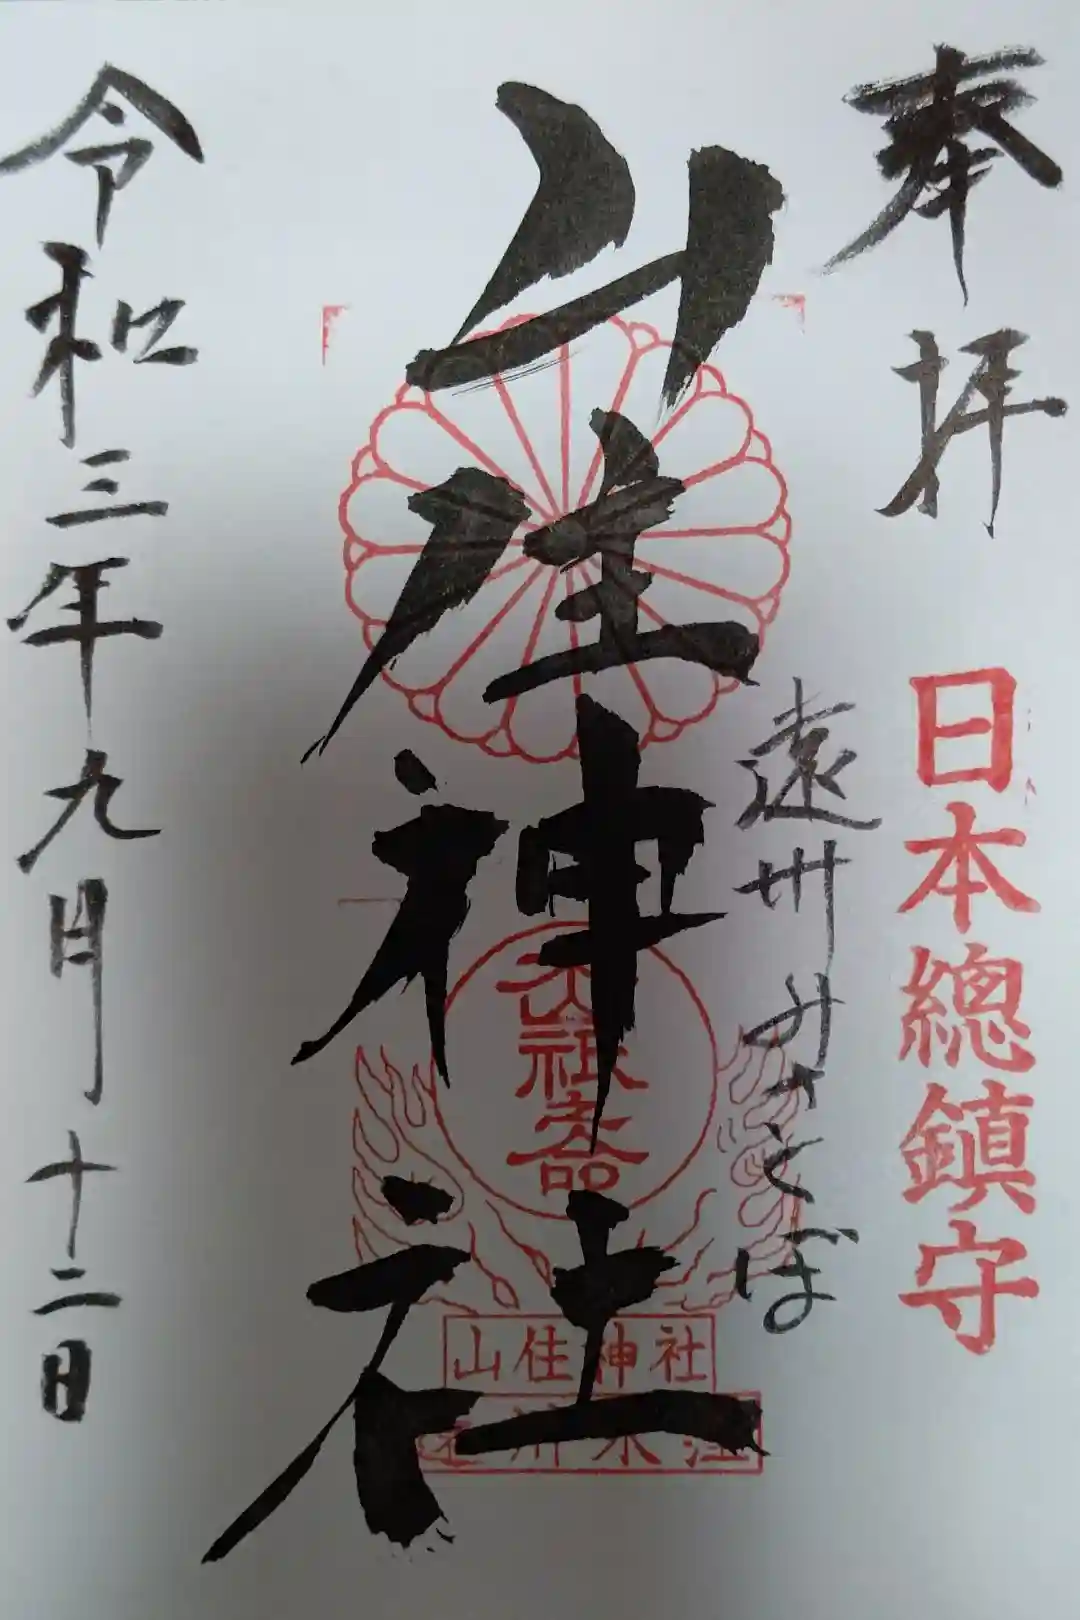 奉拝
日本總鎮守
遠州みさくぼ
山住神社
山住神社
遠州水窪
令和三年九月十二日